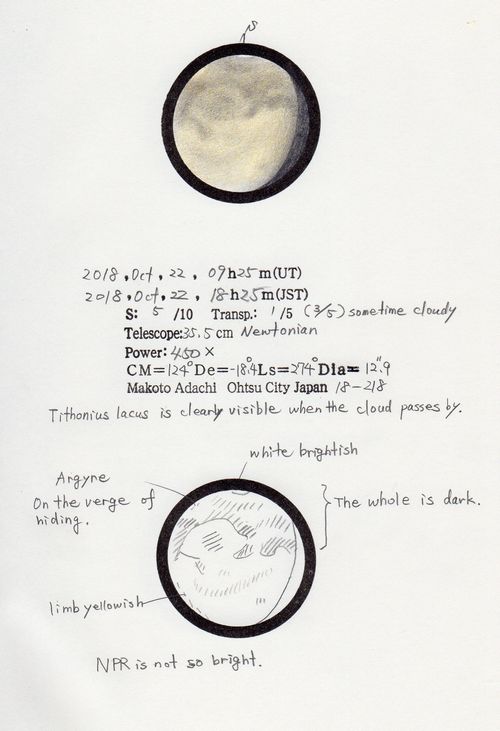 S
2018, Oct, 22, 09h25m(UT)
2018, Oct, 22, 18h25m(JST)
S: 5 /10 Transp.: 1/5 (3/5) sometime cloudy
Telescope:35.5cm Newtonian
Power: 450×
CM=124° De=-18.4° Ls=274° Dia=12.″9
Makoto Adachi Ohtsu City Japan 18-218
Tithonius lacus is clearly visible when the cloud passes by.
white brightish
Argyre
On the verge of
hiding.
The whole is dark.
limb yellowish
NPR is not so bright.